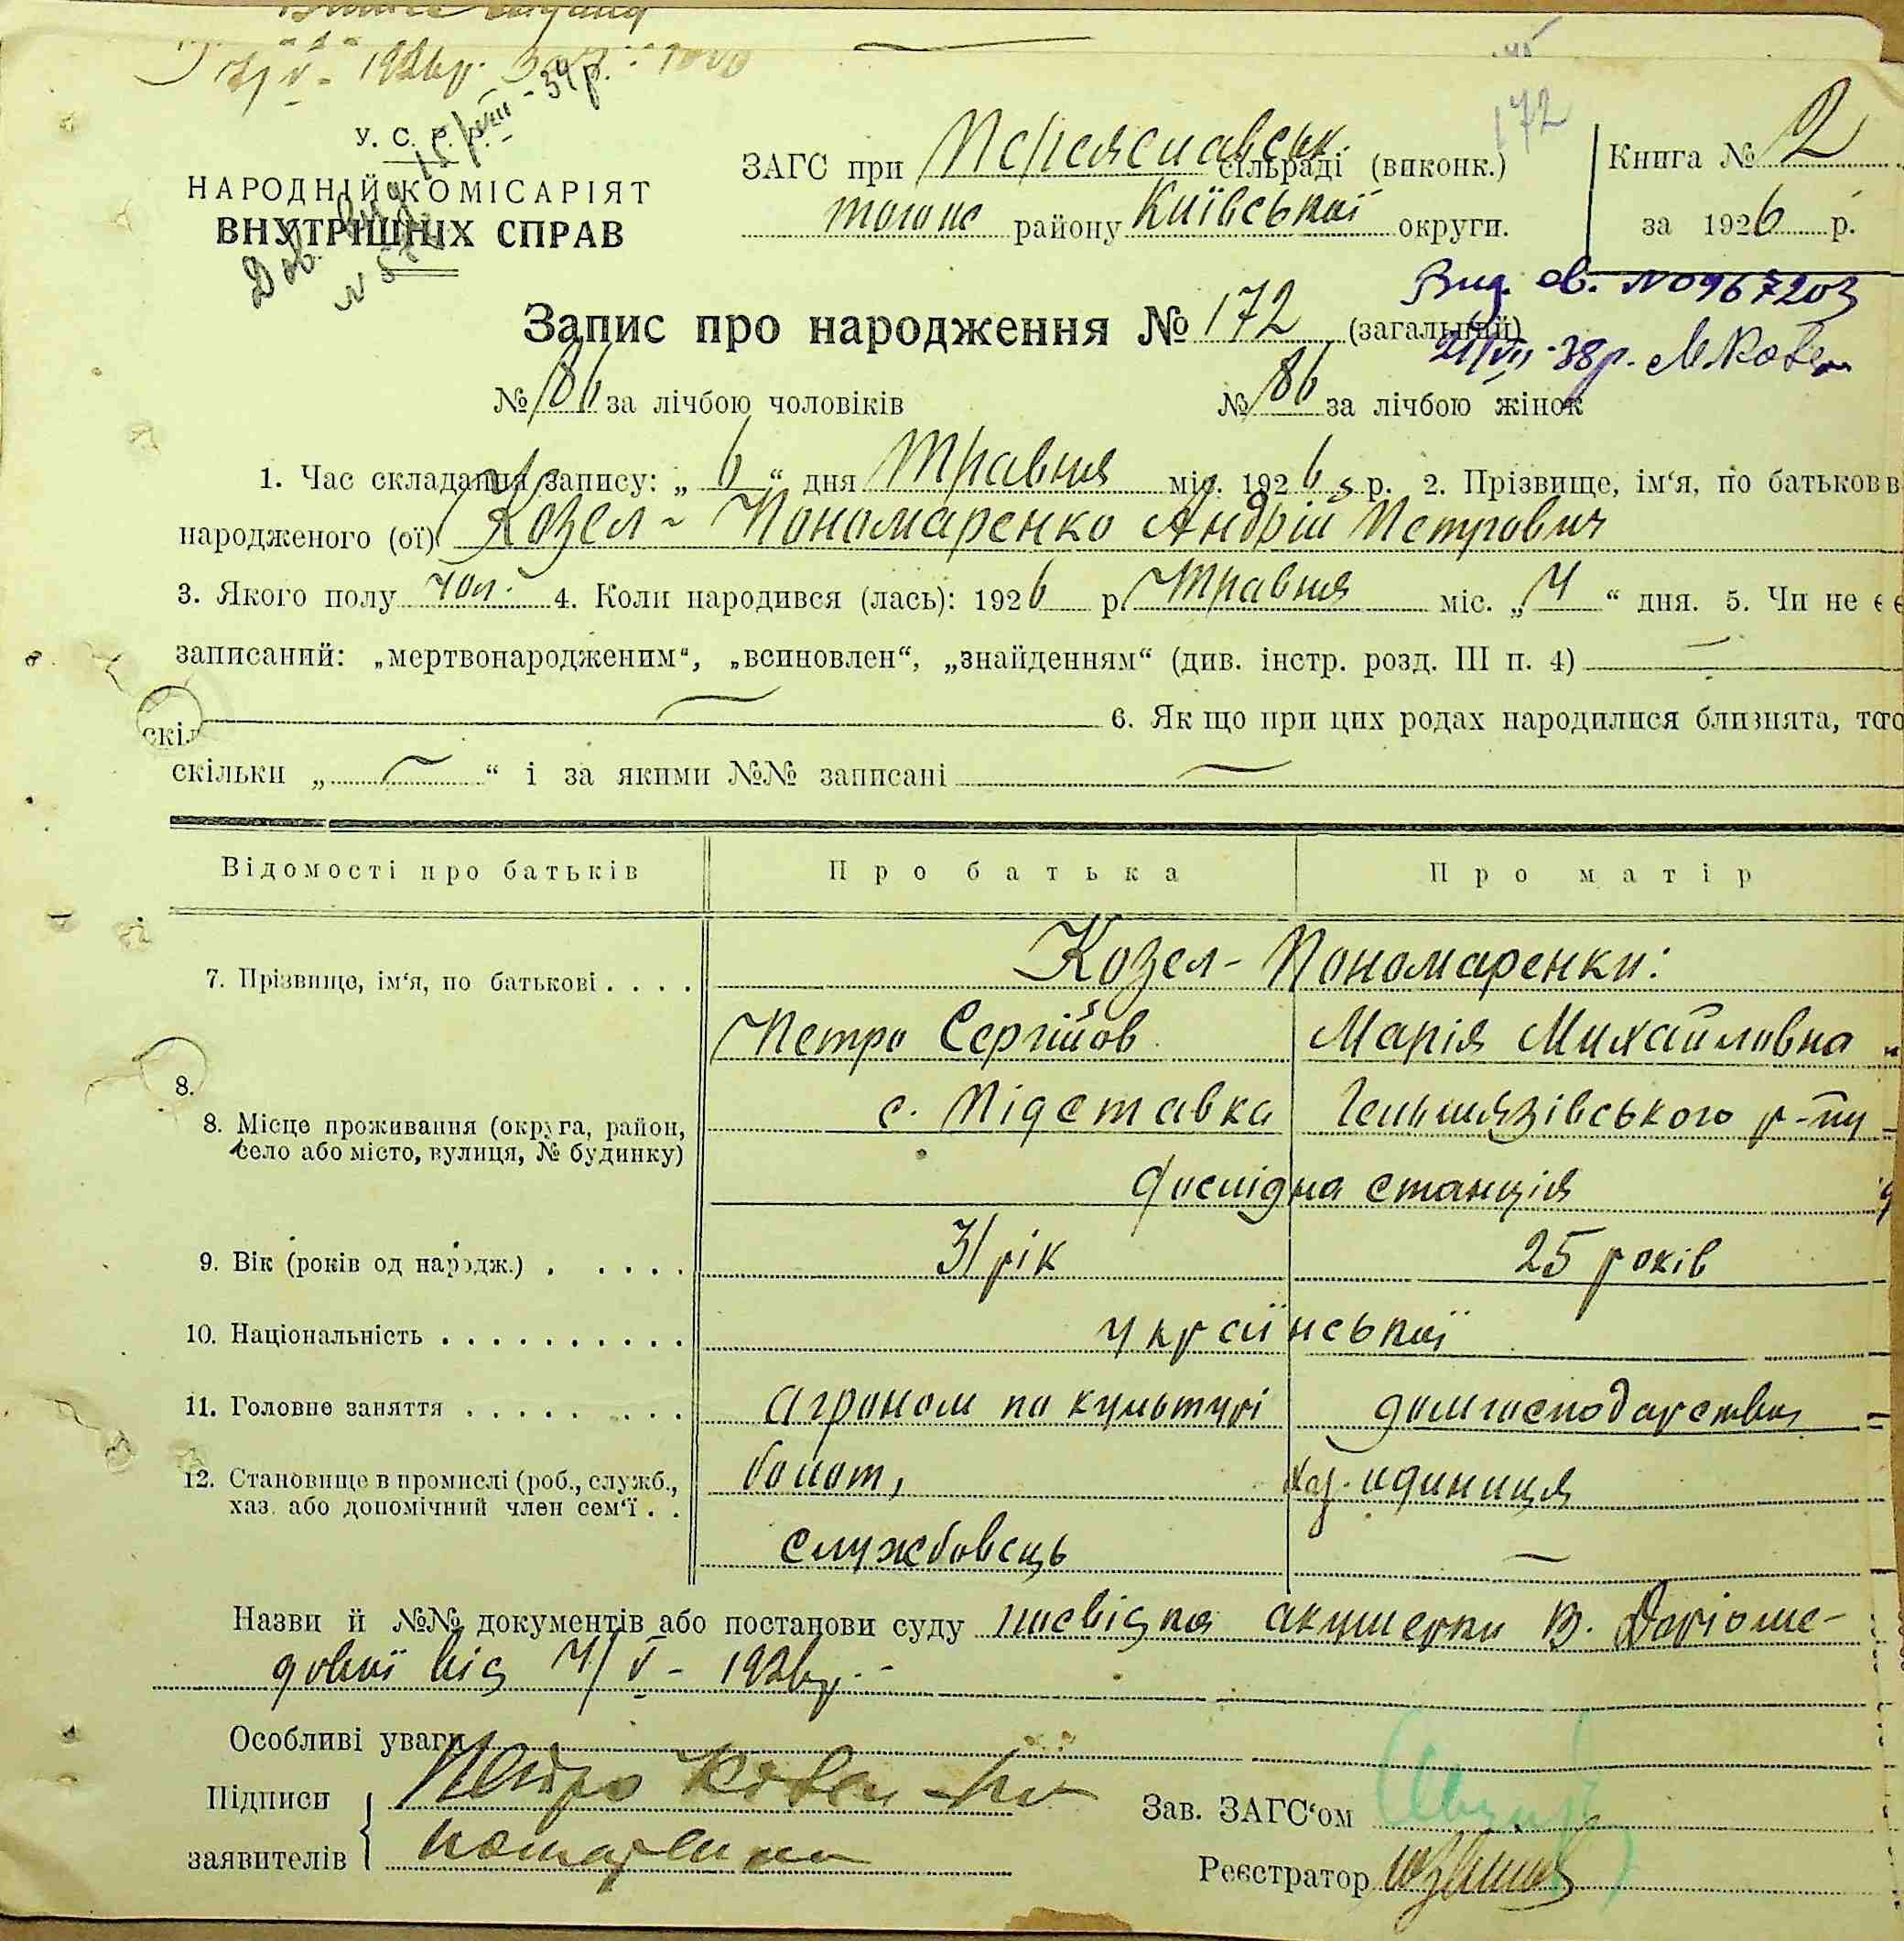 172
У. С. Р. Р.
НАРОДНІЙ КОМІСАРІЯТ
ВНУТРІШНІХ СПРАВ
ЗАГС при Переяславськ. сільраді (виконк.)
того же району Київської округи.
Книга № 2
за 1926 р.
Вид. св. № 0967203
21/VII-38р.
Запис про народження № 172 (загальний)
№ 86 за лічбою чоловіків № 86 за лічбою жінок
1. Час складання запису: „ 6 “ дня Травня міс. 1926 р. 2. Прізвище, ім‘я, по батькові
народженого (ої) Козел-Пономаренко Андрій Петрович
3. Якого полу чол. 4. Коли народився (лась): 1926 р. Травня міс. „ 4 “ дня. 5. Чи не є
записаний: „мертвонародженим“, „всиновлен“, „знайденням“ (див. інстр. розд. III п. 4) —
— 6. Як що при цих родах народилися близнята, то
скіл
скільки „ — “ і за якими №№ записані —
Відомості про батьків Про батька Про матір
7. Прізвище, ім‘я, по батькові . . . . Козел-Пономаренки:
Петро Сергійов Марія Михайловна
8.
8. Місце проживання (округа, район, с. Підставка Гельмязівського р-ну
село або місто, вулиця, № будинку)
Дослідна станція
9. Вік (років од народж.) . . . . . 31 рік 25 років
10. Національність . . . . . . . . . . української
11. Головне заняття . . . . . . . . . агроном по культурі домгосподарства
12. Становище в промислі (роб., служб., болот, одиниця
хаз. або допомічний член сем‘ї . .
службовець —
Назви й №№ документів або постанови суду посвідка акушерки В.
від 4/V-1926р.
Особливі уваги
Підписи Петро Козел-По
заявителів номаренко
Зав. ЗАГС‘ом
Реєстратор